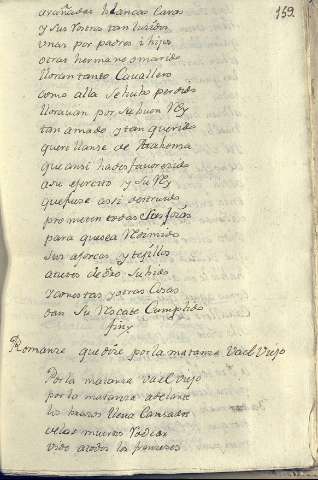 159.
arañadas blancas caras
y sus rostros tan luzidos
vnas por padres i hijos
otras hermano o marido
lloran tanto Cauallero
como alla se hubo perdido
llorauan por su buen Rey
tan amado y tan querido
querellanse de Mahoma
que ansi ha desfauorecido
a su exercito y su Rey
que fuese assi destruido
prometen todas sus
para que sea Redimido
sus aforcas y texillos
atutes de oro subido
y otras Cosas
dan su Rescate Cumplido
finy
Romance que dize por la matanza va el viejo
Por la matanza va el viejo
por la matanza adelante
los brazos lleua Cansados
de los muertos Rodear
vido a todos los franceses